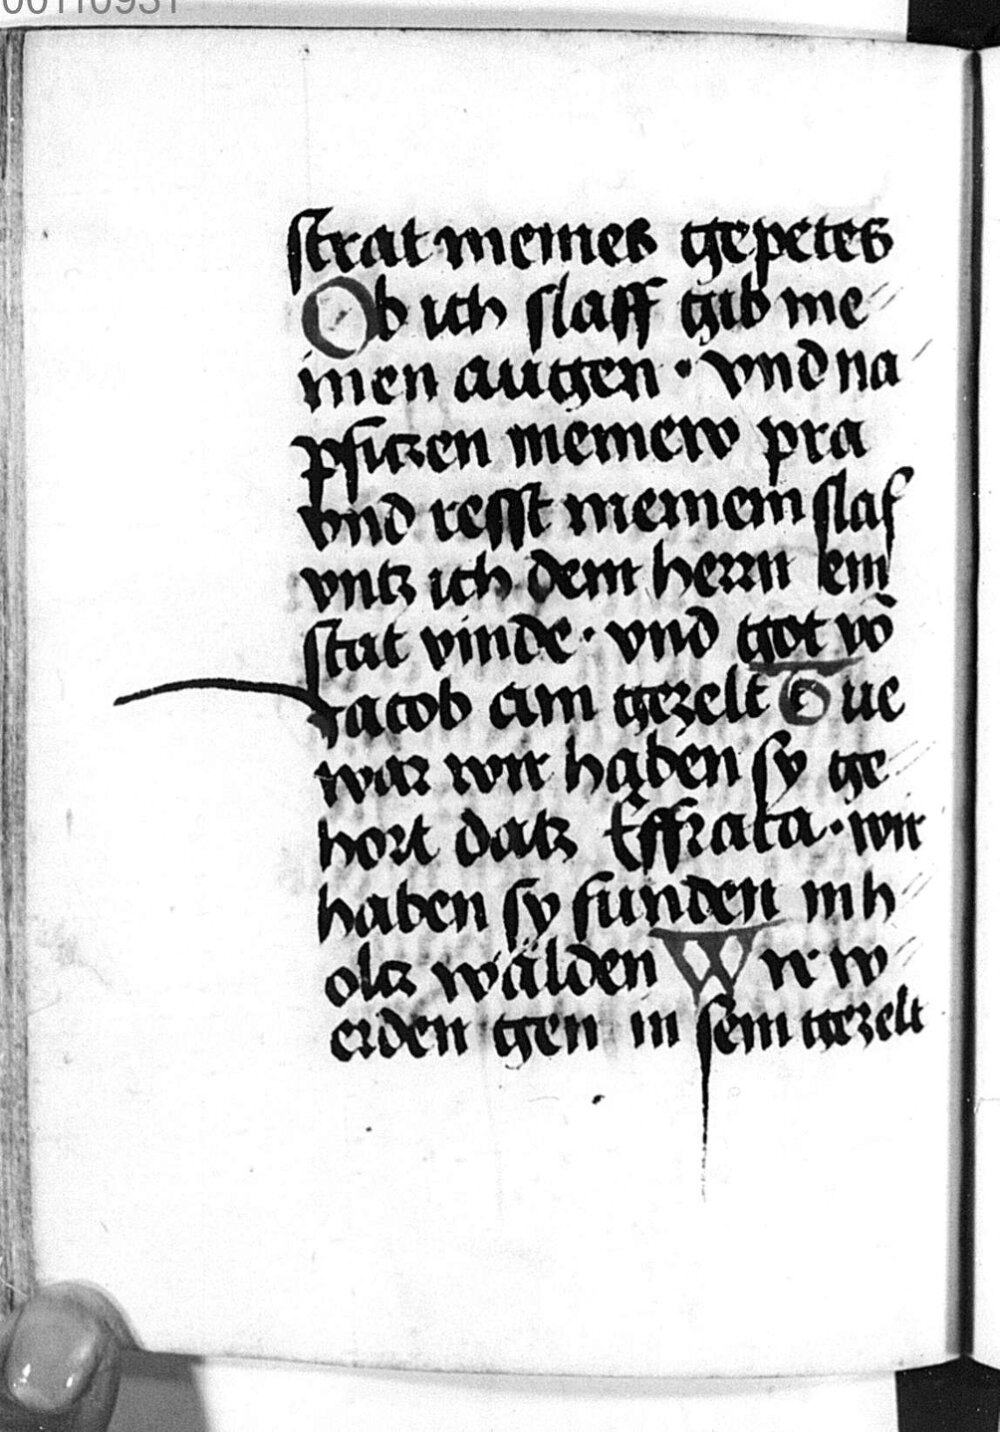 00110931
strat meines gepetes
Ob ich slaff gib mei
nen augen · vnd na
pficzen meinew pra
vnd resst meinem slaf
vntz ich dem herrn ein
stat vinde · vnd got vō
Jacob ain gezelt Tue
war wir haben sy ge
hort datz Effrata · wir
haben sy funden in h
olcz wälden Wir w
erden gen in sein gezelt